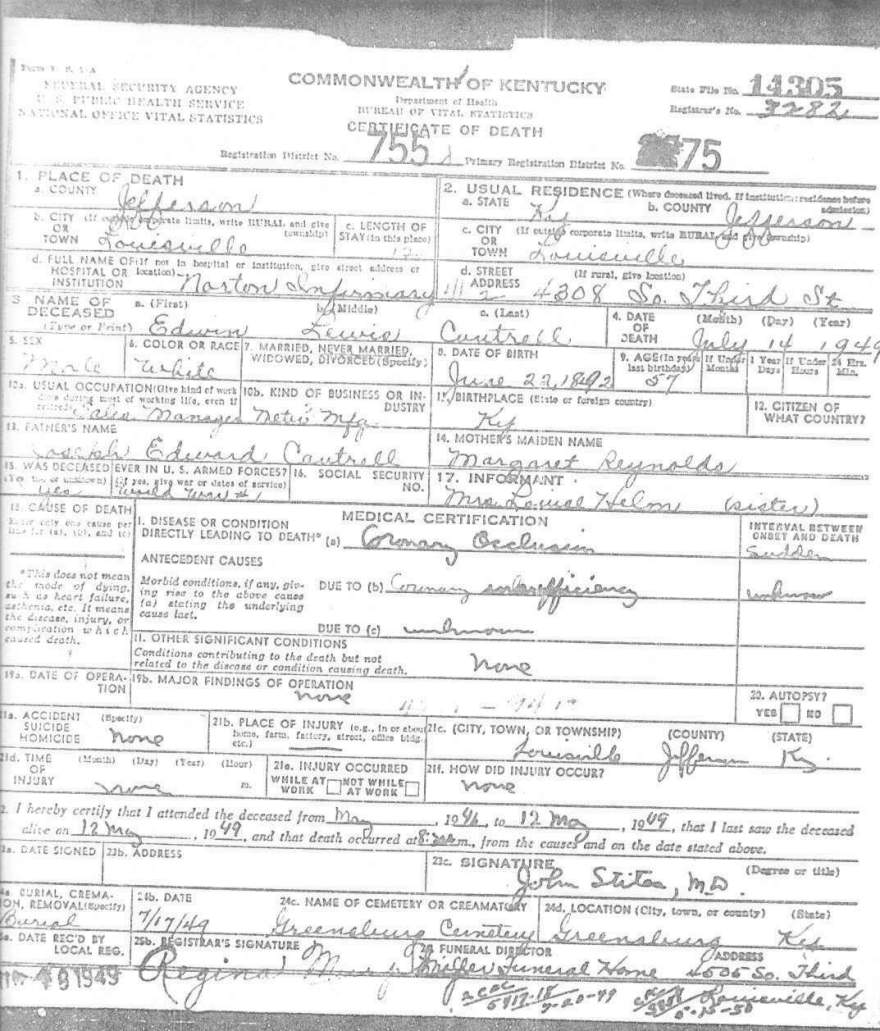 COMMONWEALTH OF KENTUCKY
FEDERAL SECURITY AGENCY
U. S. PUBLIC HEALTH SERVICE
NATIONAL OFFICE VITAL STATISTICS
Department of Health
BUREAU OF VITAL STATISTICS
CERTIFICATE OF DEATH
State File No. 14305
Registrar's No. 3282
Registration District No. 755 Primary Registration District No. 75
1. PLACE OF DEATH
a. COUNTY Jefferson
b. CITY (If outside corporate limits, write RURAL and give township) OR TOWN Louisville
c. LENGTH OF STAY (in this place)
d. FULL NAME OF (If not in hospital or institution, give street address or location) HOSPITAL OR INSTITUTION Norton Infirmary
2. USUAL RESIDENCE (Where deceased lived. If institution: residence before admission)
a. STATE Ky b. COUNTY Jefferson
c. CITY (If outside corporate limits, write RURAL and give township) OR TOWN Louisville
d. STREET ADDRESS (If rural, give location) 4308 So. Third St
3. NAME OF DECEASED (Type or Print) a. (First) Edwin b. (Middle) Lewis c. (Last) Cantrell
4. DATE OF DEATH (Month) (Day) (Year) July 14 1949
5. SEX Male
6. COLOR OR RACE White
7. MARRIED, NEVER MARRIED, WIDOWED, DIVORCED (Specify)
8. DATE OF BIRTH June 22, 1892
9. AGE (In years last birthday) 57 If Under 1 Year Months Days If Under 24 Hrs. Hours Min.
10a. USUAL OCCUPATION (Give kind of work done during most of working life, even if retired) Sales Manager
10b. KIND OF BUSINESS OR INDUSTRY Mfg
11. BIRTHPLACE (State or foreign country) Ky
12. CITIZEN OF WHAT COUNTRY?
13. FATHER'S NAME Joseph Edward Cantrell
14. MOTHER'S MAIDEN NAME Margaret Reynolds
15. WAS DECEASED EVER IN U. S. ARMED FORCES? (Yes, no, or unknown) (If yes, give war or dates of service) Yes World War # 1
16. SOCIAL SECURITY NO.
17. INFORMANT Mrs. Louise Helm (sister)
18. CAUSE OF DEATH
Enter only one cause per line for (a), (b), and (c)
MEDICAL CERTIFICATION
INTERVAL BETWEEN ONSET AND DEATH
I. DISEASE OR CONDITION DIRECTLY LEADING TO DEATH* (a) Coronary Occlusion Sudden
ANTECEDENT CAUSES
*This does not mean the mode of dying, such as heart failure, asthenia, etc. It means the disease, injury, or complication which caused death.
Morbid conditions, if any, giving rise to the above cause (a) stating the underlying cause last.
DUE TO (b) Coronary unknown
DUE TO (c) unknown
II. OTHER SIGNIFICANT CONDITIONS
Conditions contributing to the death but not related to the disease or condition causing death. None
19a. DATE OF OPERATION
19b. MAJOR FINDINGS OF OPERATION none
20. AUTOPSY? YES NO
21a. ACCIDENT SUICIDE HOMICIDE (Specify) none
21b. PLACE OF INJURY (e.g., in or about home, farm, factory, street, office bldg., etc.)
21c. (CITY, TOWN, OR TOWNSHIP) (COUNTY) (STATE) Louisville Jefferson Ky.
21d. TIME OF INJURY (Month) (Day) (Year) (Hour) m. none
21e. INJURY OCCURRED WHILE AT WORK NOT WHILE AT WORK
21f. HOW DID INJURY OCCUR? none
22. I hereby certify that I attended the deceased from May, 1946, to 12 May, 1949, that I last saw the deceased
alive on 12 May, 1949, and that death occurred at m., from the causes and on the date stated above.
23a. DATE SIGNED 23b. ADDRESS
23c. SIGNATURE (Degree or title) John Stites, M.D.
24a. BURIAL, CREMATION, REMOVAL (Specify) Burial
24b. DATE 7/17/49
24c. NAME OF CEMETERY OR CREMATORY Greensburg Cemetery
24d. LOCATION (City, town, or county) (State) Greensburg Ky
25a. DATE REC'D BY LOCAL REG. 1949
25b. REGISTRAR'S SIGNATURE Regina
26. FUNERAL DIRECTOR ADDRESS Funeral Home 4505 So. Third
Louisville, Ky